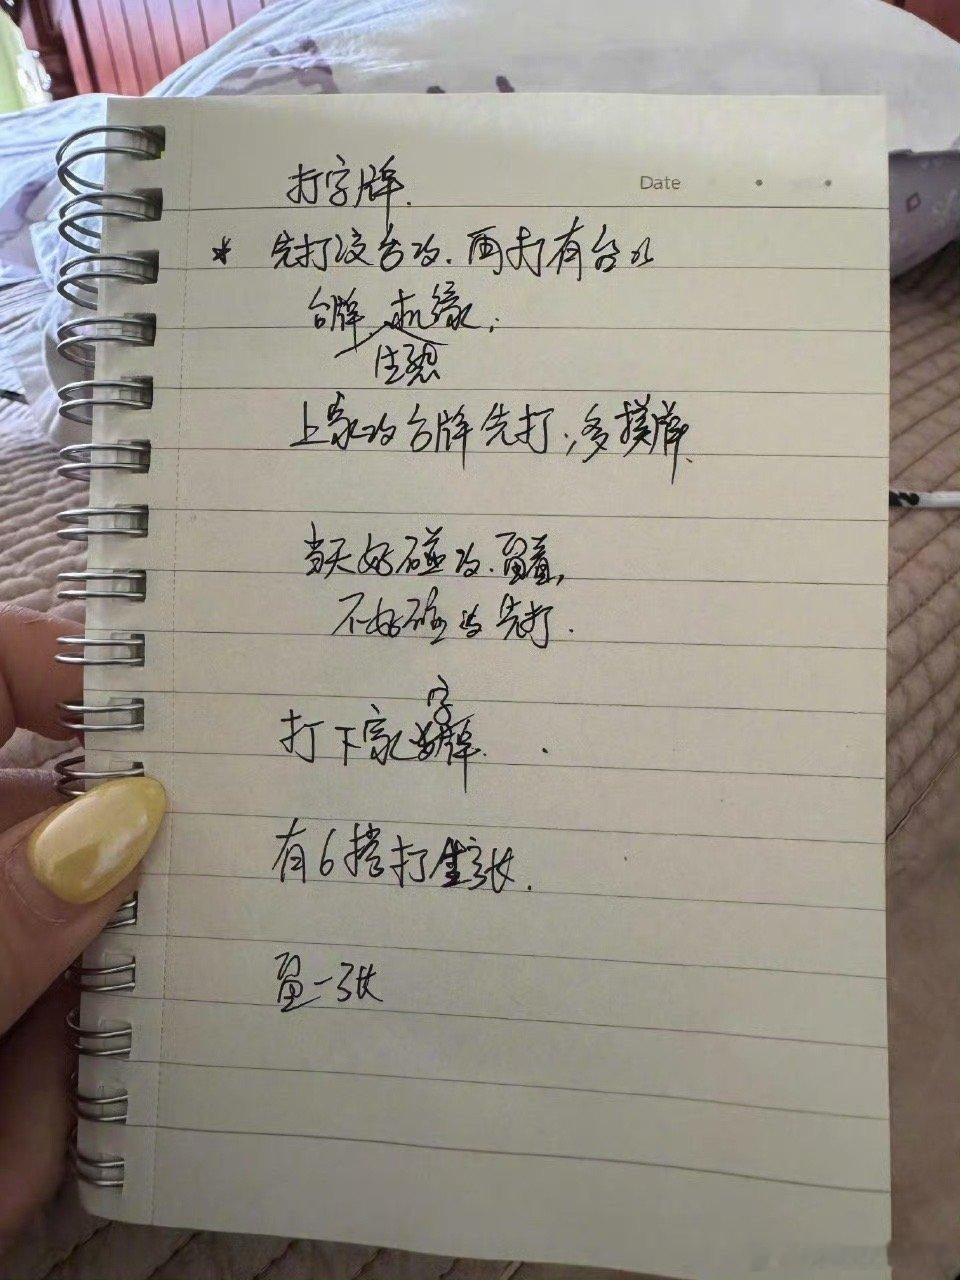 打字牌.
Date
* 先打没台的.再打有台的
台牌、机缘;
生恐
上家的台牌先打,多摸牌.
当天好碰的.留着,
不好碰的先打.
字
打下家的牌.
有6搭打生张.
留一张